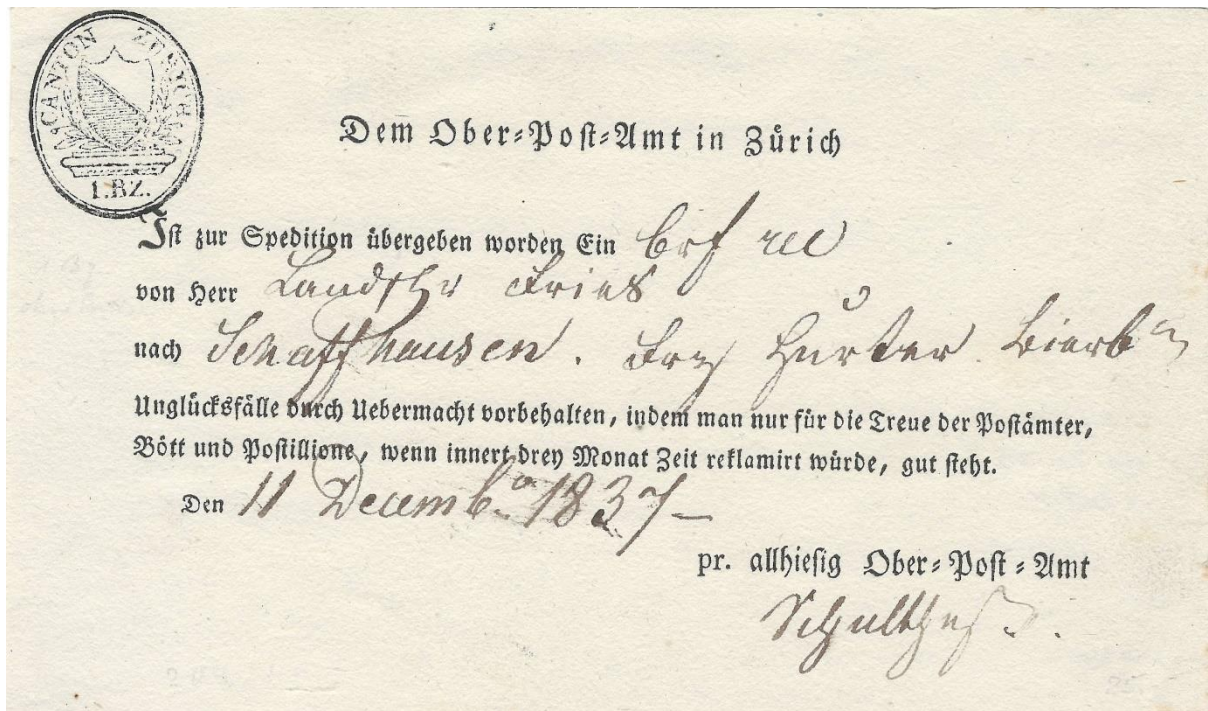 CANTON ZÜRICH
1.BZ.
Dem Ober-Post-Amt in Zürich
Ist zur Spedition übergeben worden Ein brf
von Herr Landschr Fries
nach Schaffhausen. Hurter
Unglücksfälle durch Uebermacht vorbehalten, indem man nur für die Treue der Postämter,
Bött und Postillione, wenn innert drey Monat Zeit reklamirt würde, gut steht.
Den 11 Decemb. 1837
pr. allhiesig Ober-Post-Amt
Schultheß.